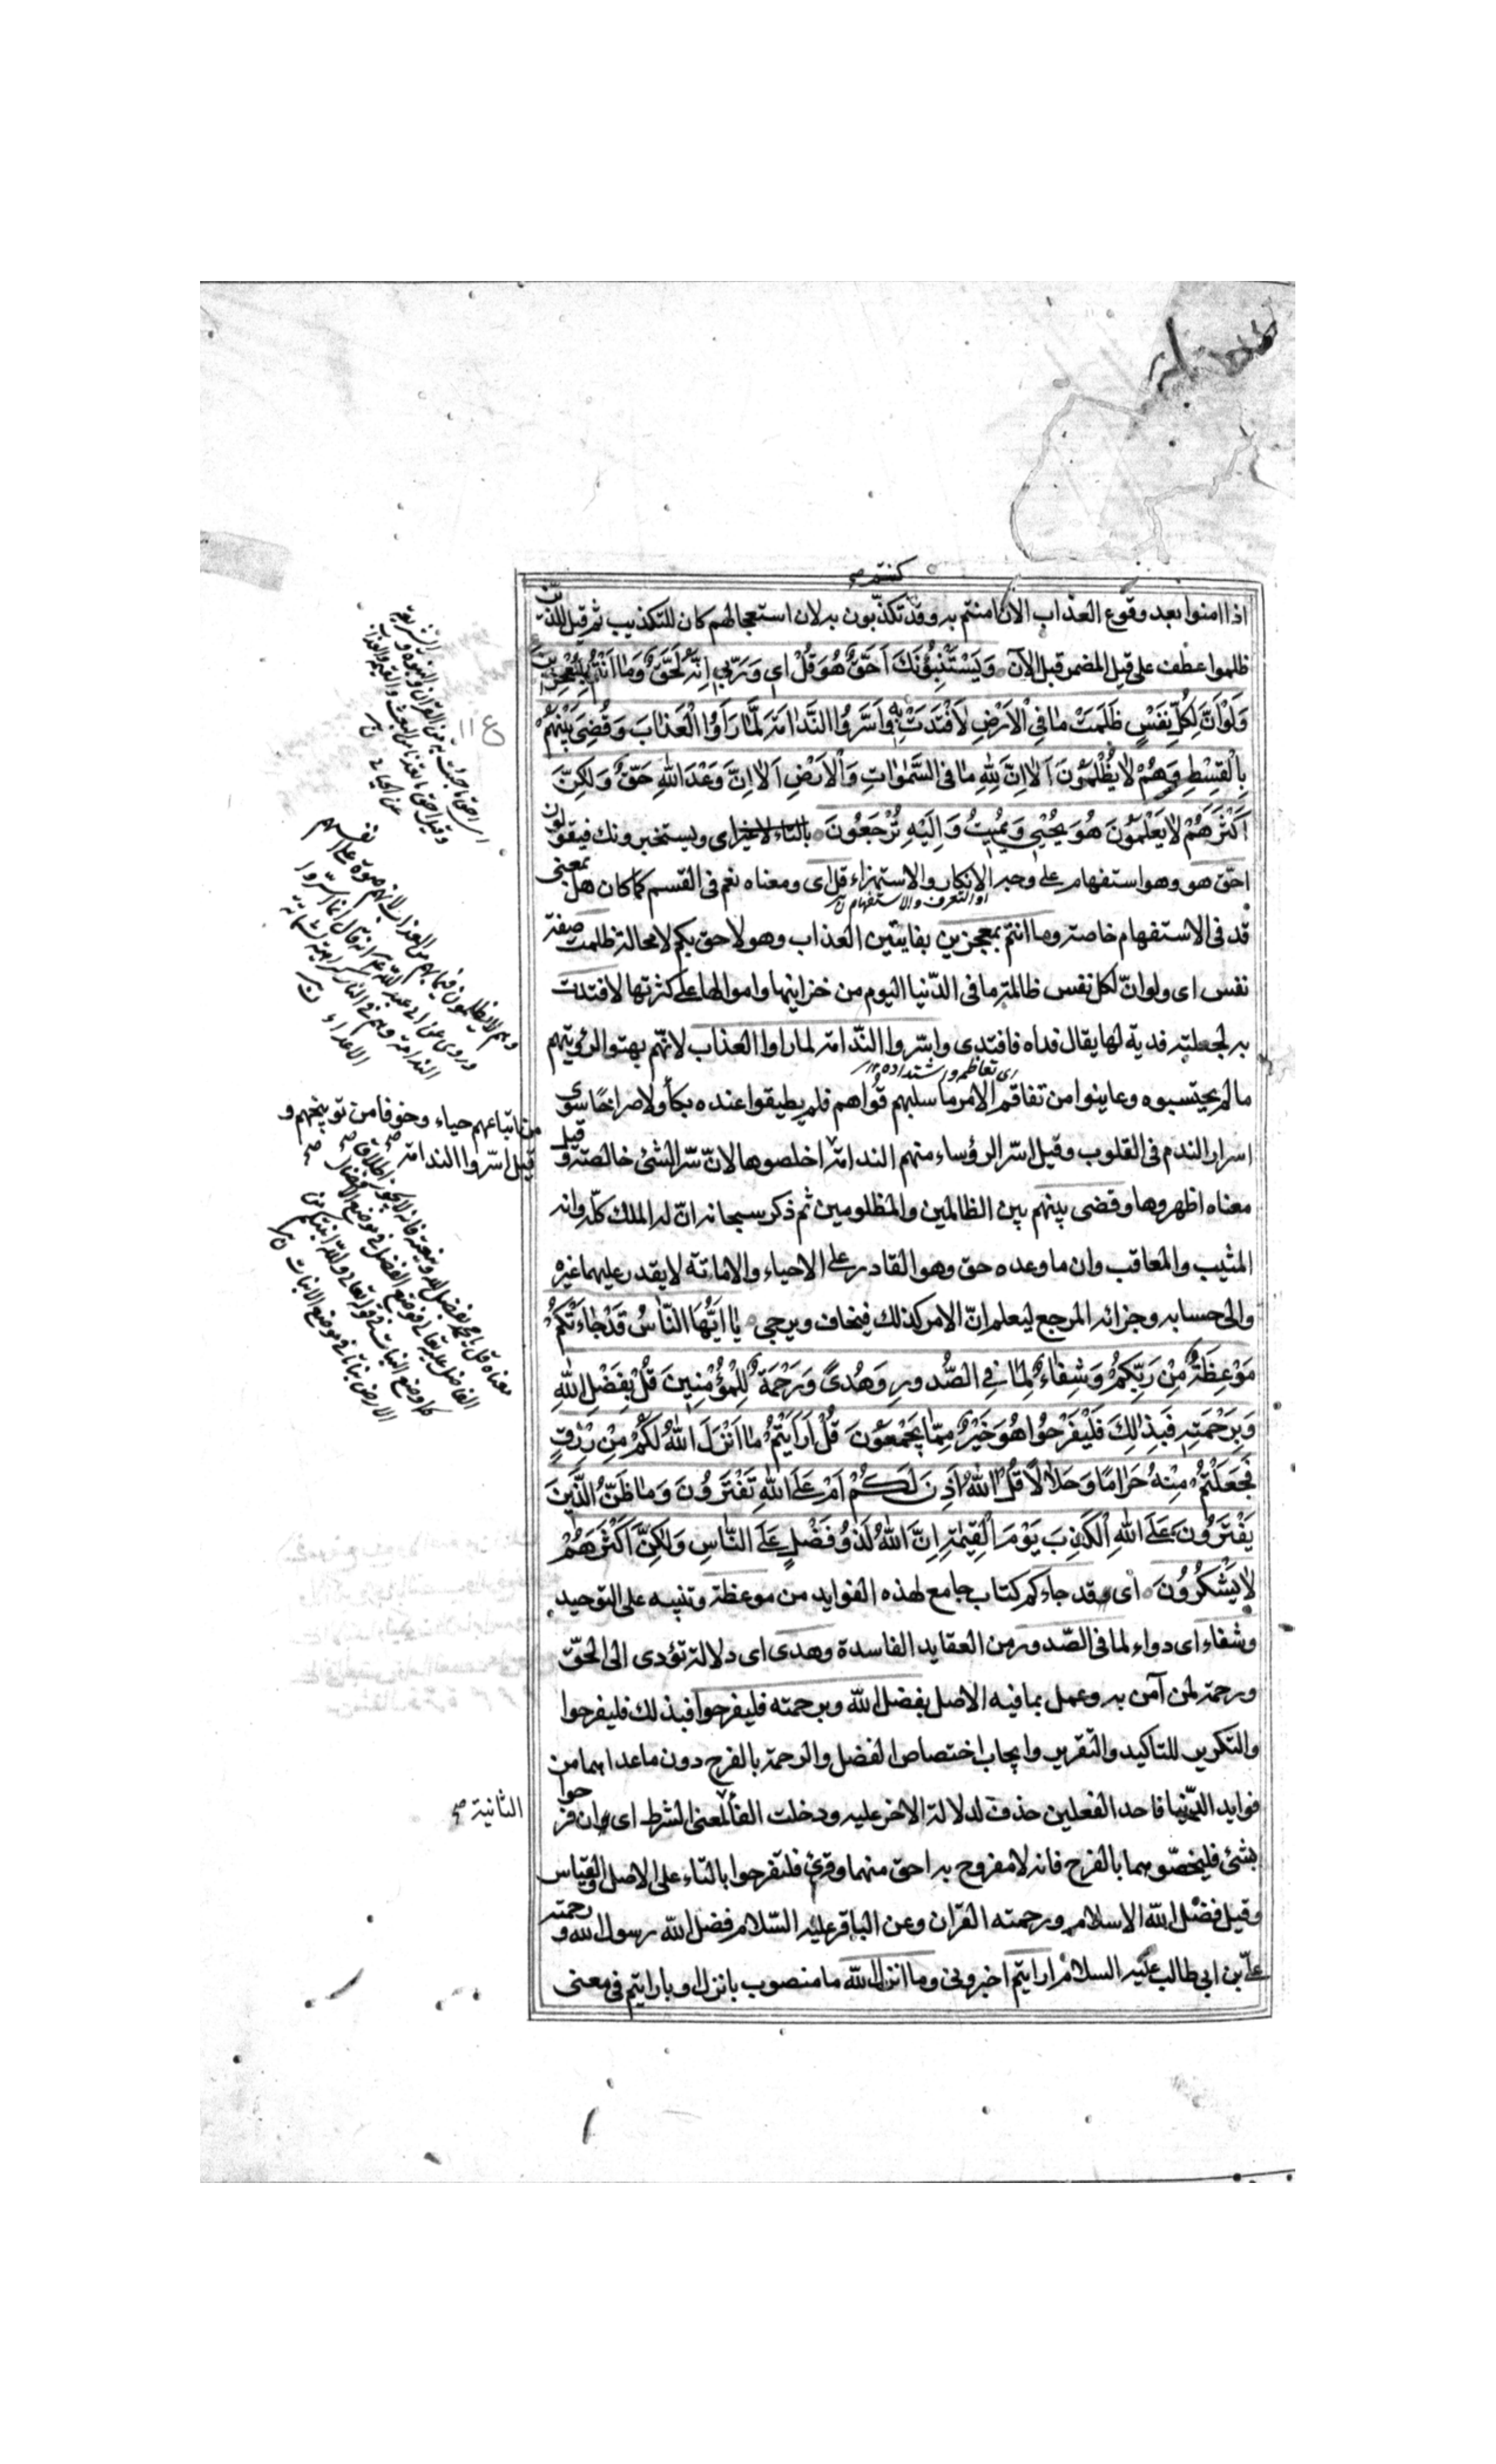 كنتم صح
اذا امنوا بعد وقوع العذاب الان امنتم به وقد تكذّبون به لان استعجالهم كان للتكذيب ثم قيل للذين
ظلموا عطف على قيل المضمر قبل الآن وَيَسْتَنْبِؤُنَكَ اَحَقٌّ هُوَ قُلْ اي وَرَبّي اِنَّهُ لَحَقٌّ وَمَا اَنْتُمْ بِمُعْجِزينَ
وَلَوْ اَنَّ لِكُلِّ نَفْسٍ ظَلَمَتْ مَا فِي الْاَرْضِ لَافْتَدَتْ بِهِ وَاَسَرُّوا النَّدَامَةَ لَمَّا رَاَوُا الْعَذَابَ وَقُضِيَ بَيْنَهُمْ
بِالْقِسْطِ وَهُمْ لَا يُظْلَمُونَ اَلَا اِنَّ لِلّهِ مَا فِي السَّمٰوَاتِ وَالْاَرْضِ اَلَا اِنَّ وَعْدَ اللهِ حَقٌّ وَلكِنَّ
اَكْثَرَهُمْ لَا يَعْلَمُونَ هُوَ يُحْيي وَيُميتُ وَاِلَيْهِ تُرْجَعُونَ اى ويستخبرونك فيقولون
احق هو وهو استفهام على وجه الانكار والاستهزاء قل اى ومعناه نعم فى القسم كما كان هل بمعنى
او التعرف والاستفهام
قد فى الاستفهام خاصة وما انتم بمعجزين بفايتين العذاب وهو لاحق بكم لا محالة ظلمت صفة
نفس اى ولو انّ لكل نفس ظالمة ما فى الدّنيا اليوم من خزاينها واموالها على كثرتها لافتدت
به لجعلته فدية لها يقال فداه فافتدى واسرّوا النّدامة لما راوا العذاب لانّهم بهتوا لرؤيتهم
اى تعاظم واشتداده
ما لم يحتسبوه وعاينوا من تفاقم الامر ما سلبهم قواهم فلم يطيقوا عنده بكأ ولا صراخًا سوى
اسرار الندم فى القلوب وقيل اسرّ الرؤساء منهم الندامة اخلصوها لانّ سّر الشئ خالصته وقيل
معناه اظهروها وقضى بينهم بين الظالمين والمظلومين ثم ذكر سبحانه انّ له الملك كلّه وانه
المثيب والمعاقب وان ما وعده حق وهو القادر على الاحياء والاماتة لا يقدر عليهما غيره
والى حسابه وجزائه المرجع ليعلم انّ الامر كذلك فيخاف ويرجى يَا اَيُّهَا النَّاسُ قَدْ جَاءَتْكُمْ
مَوْعِظَةٌ مِنْ رَبِّكُمْ وَشِفَاءٌ لِمَا فِي الصُّدُورِ وَهُدىً وَرَحْمَةٌ لِلْمُؤْمِنينَ قُلْ بِفَضْلِ اللهِ
وَبِرَحْمَتِهِ فَبِذلِكَ فَلْيَفْرَحُوا هُوَ خَيْرٌ مِمَّا يَجْمَعُونَ قُلْ اَرَاَيْتُمْ مَا اَنْزَلَ اللهُ لَكُمْ مِنْ رِزْقٍ
فَجَعَلْتُمْ مِنْهُ حَرَامًا وَحَلَالًا قُلْ اللهُ اَذِنَ لَكُمْ اَمْ عَلَى اللهِ تَفْتَرُونَ وَمَا ظَنُّ الَّذينَ
يَفْتَرُونَ عَلَى اللهِ الْكَذِبَ يَوْمَ الْقِيمَةِ اِنَّ اللهَ لَذُو فَضْلٍ عَلَى النَّاسِ وَلكِنَّ اَكْثَرَهُمْ
لَا يَشْكُرُونَ اى قد جاءكم كتاب جامع لهذه الفوايد من موعظة وتنبيه على التوحيد
وشفاء اى دواء لما فى الصّدور من العقايد الفاسدة وهدى اى دلالة تؤدى الى الحقّ
ورحمة لمن آمن به وعمل بما فيه الاصل بفضل الله وبرحمته فليفرحوا فبذلك فليفرحوا
والتكرير للتاكيد والتقرير وايجاب اختصاص الفضل والرحمة بالفرح دون ما عداهما من
فوايد الدّنيا فاحد الفعلين حذف لدلالة الاخر عليه ودخلت الفأ لمعنى الشرط اى ان فرحوا
بشئ فليخصّوهما بالفرح فانه لا مفروح به احق منهما وقرئ فلتفرحوا بالتاء على الاصل والقياس
وقيل فضل الله الاسلام ورحمته القران وعن الباقر عليه السّلام فضل الله رسول الله ورحمته
علىّ بن ابى طالب عليه السلام ارايتم اخبرونى وما انزل الله ما منصوب بانزل او بارايتم فى معنى
ع ١١
وهم لا يظلمون فيما يفعل بهم من العذاب لانهم جرّوه على انفسهم
وروى عن ابى عبد الله انه قال انما اسرّوا
الندامة وهم فى النار كراهية لشماتة
الاعداء
من اتباعهم حياء وخوفا من توبيخهم و
قيل اسرّوا الندامة صح
الثانية صح